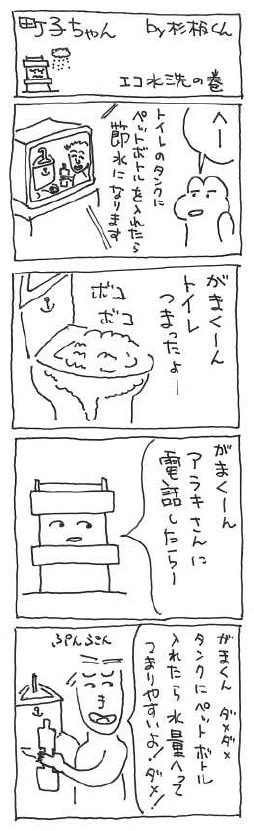 町子ちゃん
by杉柄くん
エコ水洗の巻
へー
トイレのタンクに
ペットボトルを入れたら
節水になります
がまくーん
トイレ
つまったよー
ボコ
ボコ
がまくーん
アラキさんに
電話したらー
がまくん ダメダメ
タンクにペットボトル
入れたら水量へって
つまりやすいよ!ダメ!